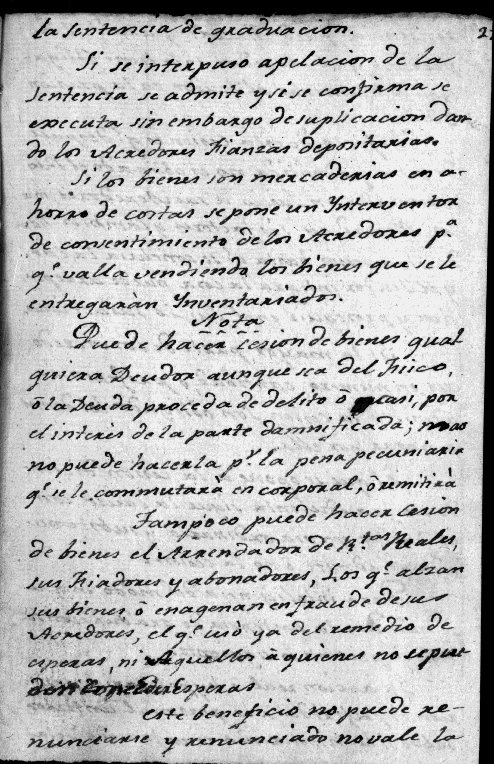 la sentencia de graduacion.
2
Si se interpuso apelacion de la
sentencia se admite y si se confirma se
executa sin embargo de suplicacion dan
do los Acredores Fianzas depositarias.
Si los bienes son mercaderias en a-
horro de costas se pone un Interventor
de consentimiento de los Acredores p.ª
q.e valla vendiendo los bienes que se le
entregaràn Ynventariados.
Nota
Puede hacer Cesion de bienes qual
quiera Deudor aunque sea del Fisco,
ò la Deuda proceda de delito ò casi, por
el interés de la parte damnificada; mas
no puede hacerla p.r la pena pecuniaria
q.e se le commutarà en corporal, ò remitirà
Tampoco puede hacer Cesion
de bienes el Arrendador de R.tas Reales,
sus Fiadores y abonadores, Los q.e alzan
sus bienes ò enagenan en fraude de sus
Acredores, el q.e usò ya del remedio de
esperas, ni Aquellos à quienes no se pue
den Conceder Esperas
este beneficio no puede re-
nunciarse y renunciado no vale la